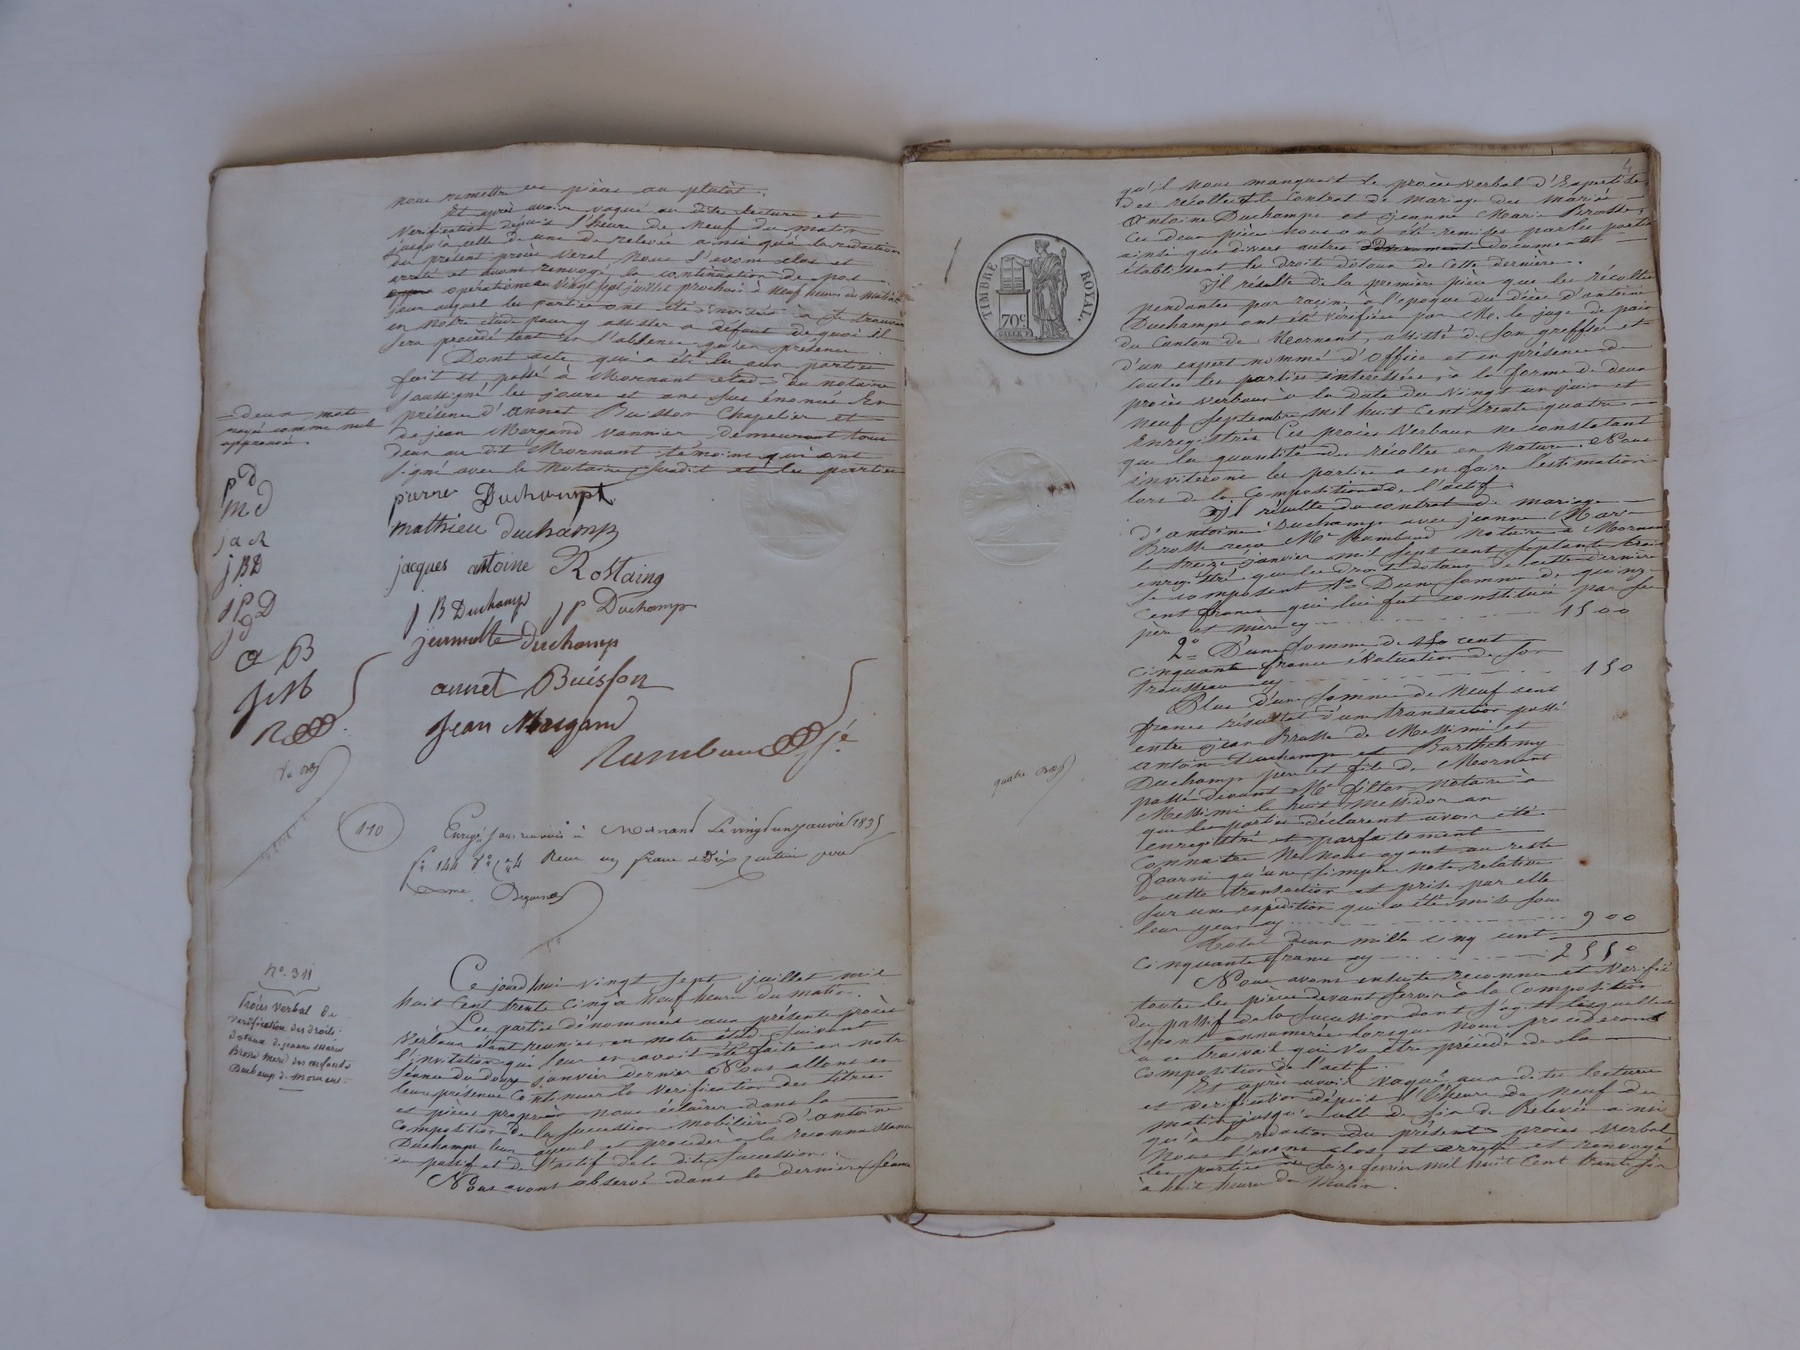 nous remettre ces pièces au plutôt.
Et après avoir vaqué au dites lecture et
Verification depuis l'heure de Neuf du matin
jusqu'à celle de une de relevée ainsi qu'à la redaction
du présent procès verbal Nous l'avons clos et
arrêté et avons renvoyé la continuation de nos
operations au Vingt sept juillet prochain à Neuf heures du matin
jour auquel les parties ont été invités à se trouver
en notre étude pour y assister a défaut de quoi il
sera procédé tant en l'absence qu'en présence.
Dont acte, qui a été lu aux parties
fait et passé à Mornant étude du notaire
soussigné les jours et ans sus énoncés En
présence d'annet Buisson Chapelier et
de jean Margand Vannier demeurant tous
deux au dit Mornant témoins qui ont
signé avec le Notaire susdit et les parties
= deux mots
rayé comme nul
approuvé.
pD
md
jaR
jBD
jPD
jD
aB
jM
R
pierre Duchampt
mathieu duchamp
jacques antoine Rostaing
j B Duchamp jP Duchamp
jeannette duchamp
annet Buisson
Jean Margand
Rambaud
110
Enrgé sans renvois à Mornand Le vingt un janvier 1835
fo 144 Vo Reçu un franc et Dix centimes pour
No. 311
Procès Verbal de
Verification des droits
Dotaux de jeanne Marie
Brosse Mere des enfants
Duchamp de Mornant
Ce jourd'hui vingt sept juillet mil
huit Cent trente Cinq à neuf heures du matin.
Les parties dénommées aux présents procès
Verbaux étant réunies en notre étude suivant
l'invitation qui leur en avait été faite en notre
séance du douze janvier dernier Nous allons en
leur présence Continuer la Verification des titres
et pièces propres à nous éclairer dans la
Composition de la succession Mobilière d'Antoine
Duchamp leur ayeul et procéder à la reconnaissance
du passif et de l'actif de la dite succession.
Nous avons observé dans la dernière séance
4
qu'il Nous manquait le procès Verbal d'Expertise
des récoltes et le Contrat de mariage des mariés
Antoine Duchamp et jeanne Marie Brosse,
Ces deux pièces Nous ont été remises par les parties
ainsi que divers autres documents
établissant les droits dotaux de Cette dernière.
Il résulte de la première pièce que les récoltes
pendantes par racine à l'époque du décès d'antoine
Duchamp ont été Vérifiées par M. le juge de paix
du Canton de Mornant, assisté de son greffier et
d'un expert nommé d'Office et en présence de
toutes les parties intéressées à la forme de deux
procès verbaux à la date du Vingt un juin et
neuf Septembre Mil huit Cent trente quatre
Enregistrés Ces procès Verbaux ne constatant
que la quantité des récoltes en Nature. Nous
inviterons les parties a en faire l'estimation
lors de la Composition de l'actif.
Il résulte du contrat de mariage
d'antoine Duchamp avec jeanne Marie
Brosse reçu Me Rambaud Notaire à Mornant
le treize janvier mil sept cent septante trois
enregistré, que les droits dotaux de cette dernière
se composent 1o D'une somme de quinze
Cent francs qui lui fut constituée par ses
père et mère cy 1500
2o D'une somme de Cent
cinquante francs évaluation de son
trousseau cy 150
Plus d'une somme de Neuf cent
francs résultat d'une transaction passé
entre jean Brosse de Messimi et
antoine Duchamp et Barthelemy
Duchamp père et fils de Mornant
passé devant Me Notaire à
Messimi le huit Messidor an
que les parties déclarent avoir été
enregistré et parfaitement
Connaitre Ne nous ayant au reste
fourni qu'une simple Note relative
a cette transaction et prise par elle
sur une expédition qui a été mise sous
leurs yeux cy 900
Total deux mille cinq cent
cinquante francs cy 2550
Nous avons ensuite reconnu et Verifié
toutes les pièces devant servir à la Composition
du passif de la succession dont s'agit lesquelles
seront énumérées lorsque Nous procéderons
a ce travail qui Va être précédé de la
Composition de l'actif.
Et après avoir vaqué aux dites lecture
et verification depuis l'heure de neuf du
matin jusqu'a celle de six de Relevée ainsi
qu'à la redaction du présent procès Verbal
Nous l'avons clos et arrêté et renvoyé
les parties au seize fevrier mil huit Cent trente six
à huit heures du Matin.
TIMBRE ROYAL.
70c